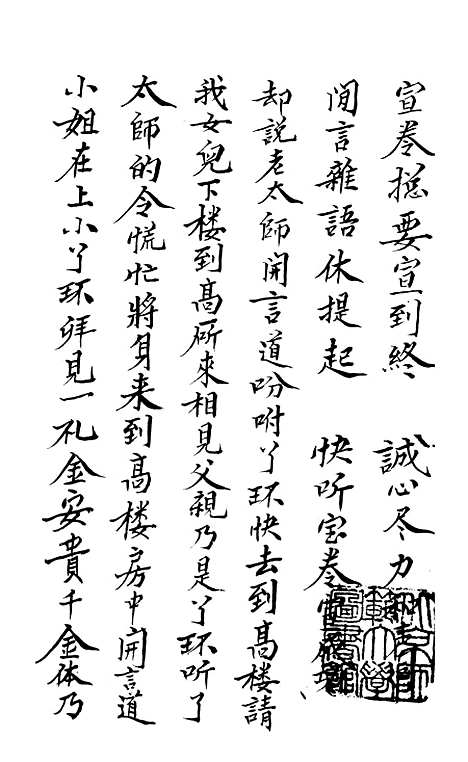 宣卷摠要宣到終　誠心尽力
閒言雜語休提起　快听宝卷
却說老太師開言道吩咐丫环快去到高楼請
我女兒下楼到高厛來相見父親乃是丫环听了
太師的令慌忙將身来到高楼房中開言道
小姐在上小丫环拜見一礼金安貴千金体乃